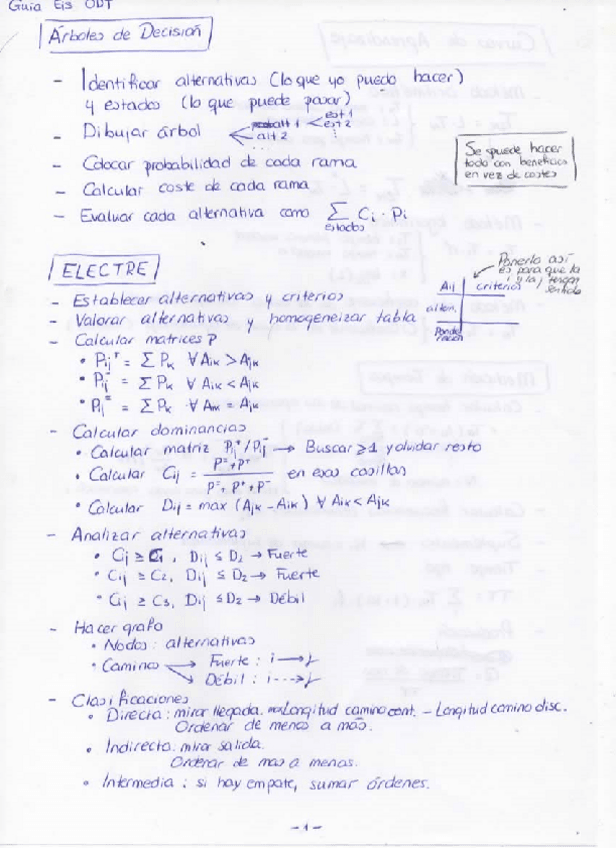 Guia Ejs ODT
Árboles de Decisión
- Identificar alternativas (lo que yo puedo hacer)
y estados (lo que puede pasar)
- Dibujar árbol alt 1 est 1 est 2 alt 2
- Colocar probabilidad de cada rama
- Calcular coste de cada rama
- Evaluar cada alternativa como Σ Ci · Pi
estados
Se puede hacer
todo con beneficios
en vez de costes
ELECTRE
- Establecer alternativas y criterios
- Valorar alternativas y homogeneizar tabla
Ponerlo así
es para que la
i y la j tengan
sentido
Aij criterios
altern.
Ponde
ración
- Calcular matrices P
• Pij⁺ = Σ Pk ∀ Aik > Ajk
• Pij⁻ = Σ Pk ∀ Aik < Ajk
• Pij⁼ = Σ Pk ∀ Aik = Ajk
- Calcular dominancias
• Calcular matriz Pij⁺/Pij⁻ → Buscar ≥ 1 y olvidar resto
• Calcular Cij = (P⁼ + P⁺) / (P⁼ + P⁺ + P⁻) en esas casillas
• Calcular Dij = max (Ajk - Aik) ∀ Aik < Ajk
- Analizar alternativas
• Cij ≥ C1, Dij ≤ D2 → Fuerte
• Cij ≥ C2, Dij ≤ D2 → Fuerte
• Cij ≥ C3, Dij ≤ D2 → Débil
- Hacer grafo
• Nodos: alternativas
• Caminos → Fuerte : i → j
→ Débil : i ---> j
- Clasificaciones
• Directa: mirar llegada. Longitud camino cont. - Longitud camino disc.
Ordenar de menos a más.
• Indirecta: mirar salida.
Ordenar de mas a menos.
• Intermedia : si hay empate, sumar órdenes.
-1-